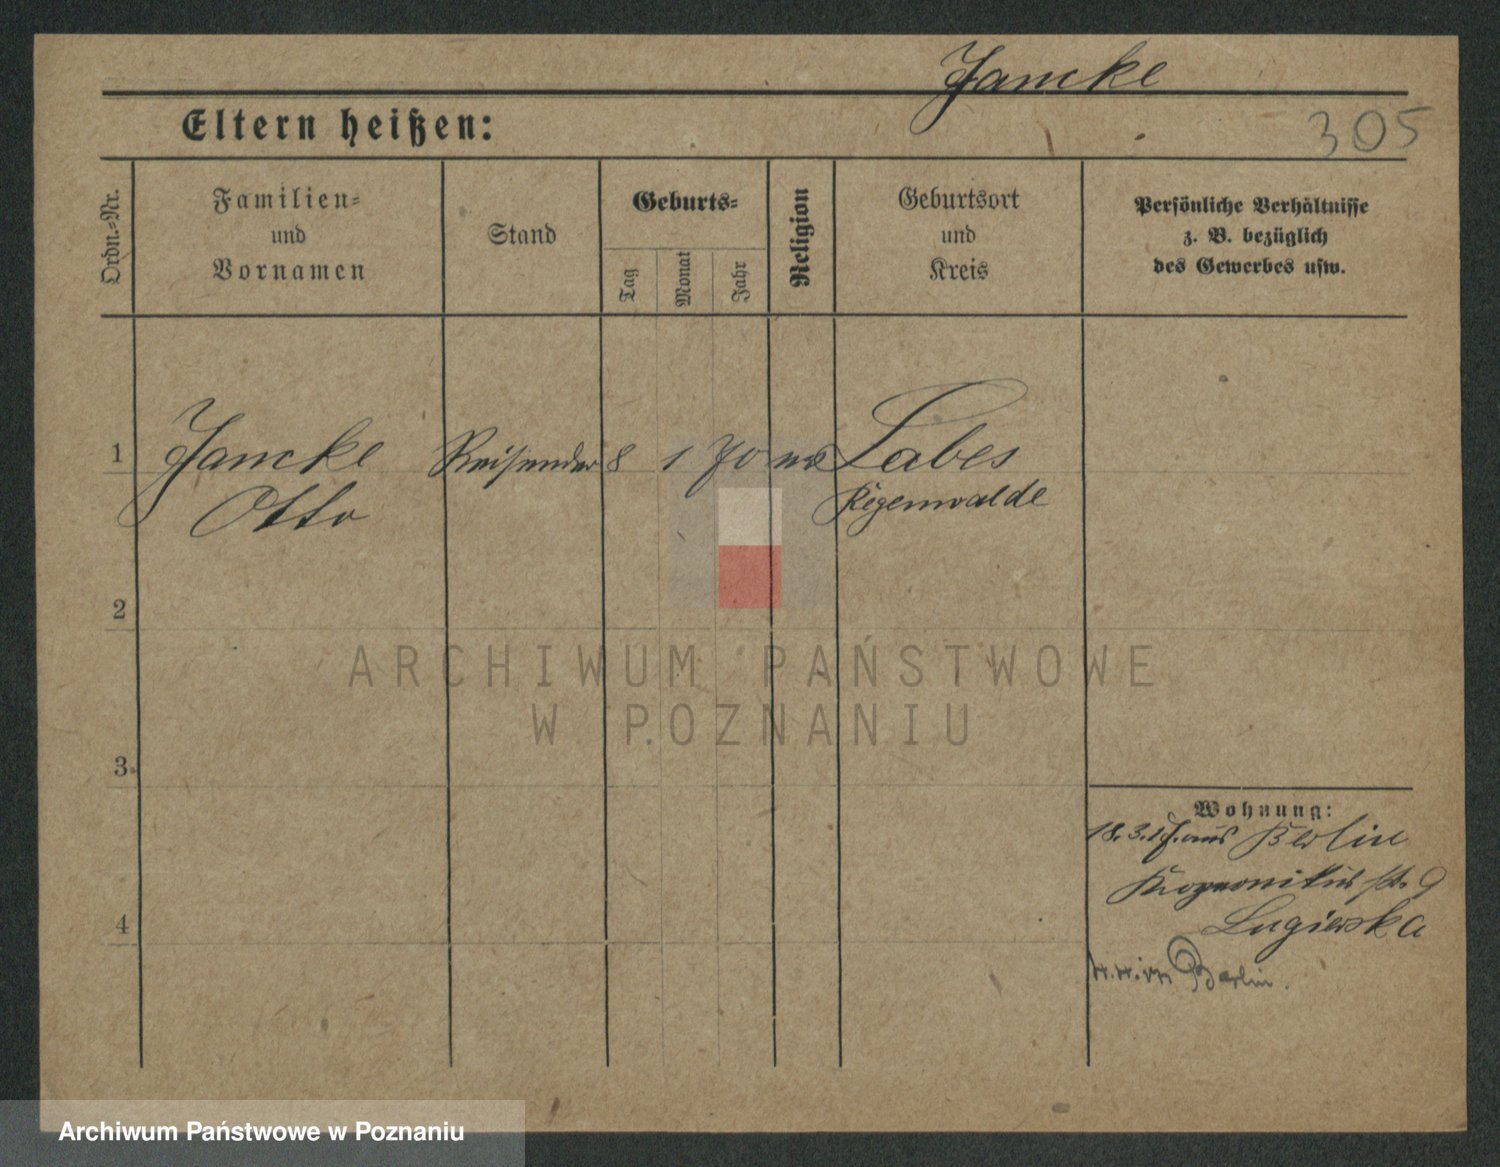 Jancke
Eltern heißen:
305
Ordn.-Nr.
Familien-
und
Vornamen
Stand
Geburts-
Tag
Monat
Jahr
Religion
Geburtsort
und
Kreis
Persönliche Verhältnisse
z. B. bezüglich
des Gewerbes usw.
1
Jancke
Otto
Reisender
8
1
70
Labes
Regenwalde
2
3
4
Wohnung:
18. 3. 17. aus Berlin
9
Berlin.
ARCHIWUM PAŃSTWOWE
W POZNANIU
Archiwum Państwowe w Poznaniu